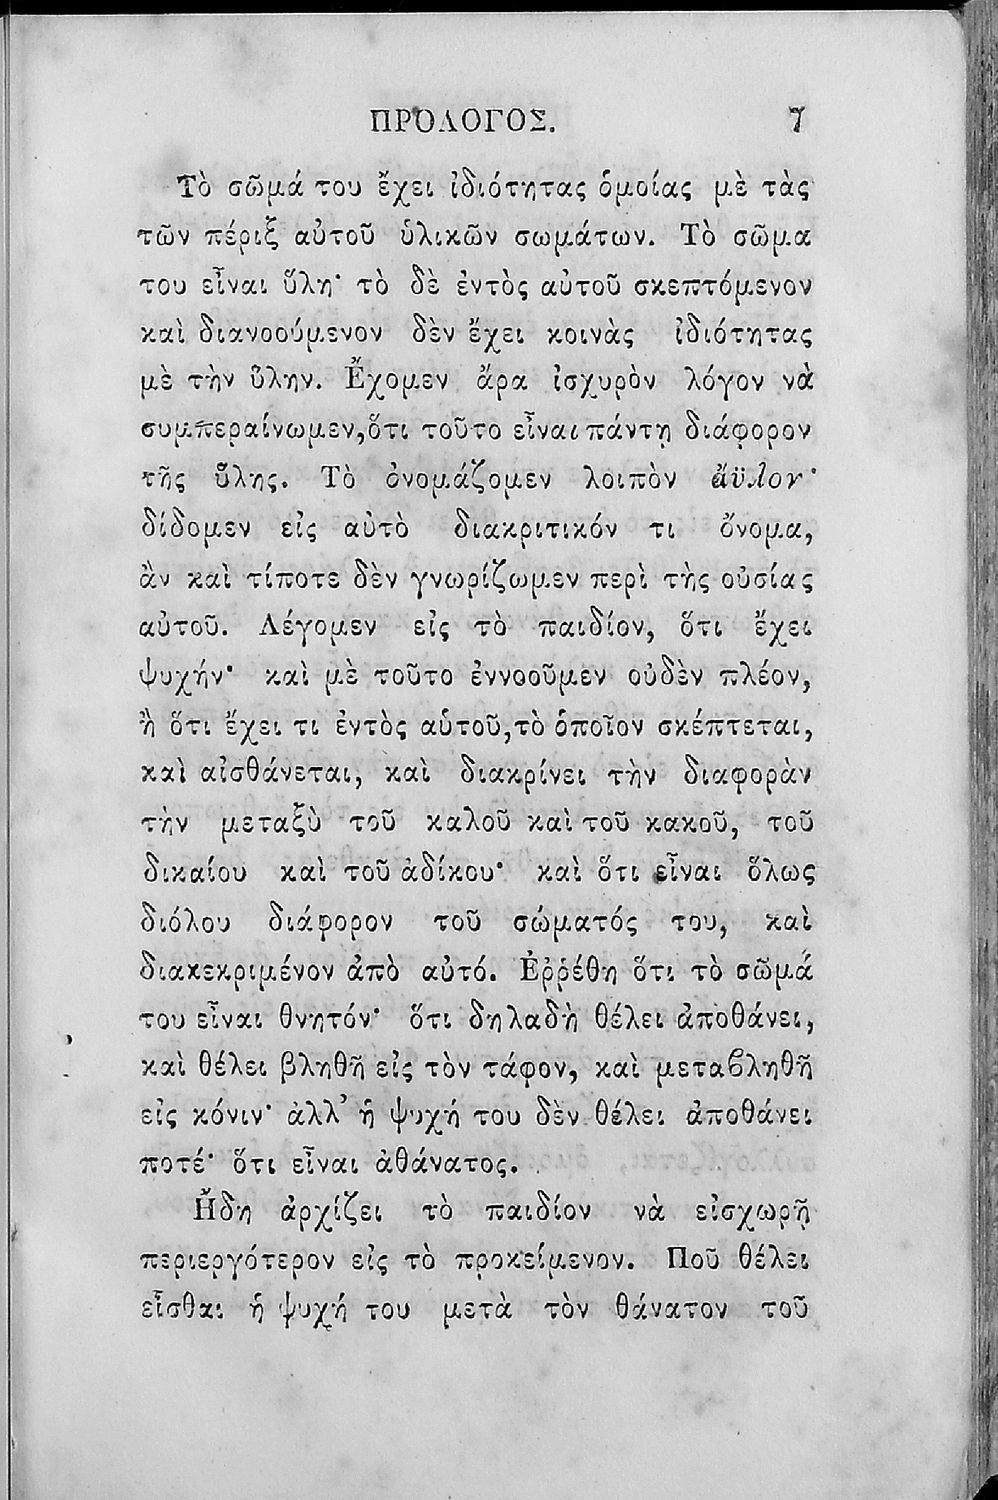 ΠΡΟΛΟΓΟΣ. 7
Τὸ σῶμά του ἔχει ἰδιότητας ὁμοίας μὲ τὰς
τῶν πέριξ αὐτοῦ ὑλικῶν σωμάτων. Τὸ σῶμα
του εἶναι ὕλη· τὸ δὲ ἐντὸς αὐτοῦ σκεπτόμενον
καὶ διανοούμενον δὲν ἔχει κοινὰς ἰδιότητας
μὲ τὴν ὕλην. Ἔχομεν ἄρα ἰσχυρὸν λόγον νὰ
συμπεραίνωμεν, ὅτι τοῦτο εἶναι πάντη διάφορον
τῆς ὕλης. Τὸ ὀνομάζομεν λοιπὸν ἄϋλον·
δίδομεν εἰς αὐτὸ διακριτικόν τι ὄνομα,
ἂν καὶ τίποτε δὲν γνωρίζωμεν περὶ τῆς οὐσίας
αὐτοῦ. Λέγομεν εἰς τὸ παιδίον, ὅτι ἔχει
ψυχήν· καὶ μὲ τοῦτο ἐννοοῦμεν οὐδὲν πλέον,
ἢ ὅτι ἔχει τι ἐντὸς αὑτοῦ, τὸ ὁποῖον σκέπτεται,
καὶ αἰσθάνεται, καὶ διακρίνει τὴν διαφορὰν
τὴν μεταξὺ τοῦ καλοῦ καὶ τοῦ κακοῦ, τοῦ
δικαίου καὶ τοῦ ἀδίκου· καὶ ὅτι εἶναι ὅλως
διόλου διάφορον τοῦ σώματός του, καὶ
διακεκριμένον ἀπὸ αὐτό. Ἐῤῥέθη ὅτι τὸ σῶμά
του εἶναι θνητόν· ὅτι δηλαδὴ θέλει ἀποθάνει,
καὶ θέλει βληθῆ εἰς τὸν τάφον, καὶ μεταϐληθῆ
εἰς κόνιν· ἀλλ’ ἡ ψυχή του δὲν θέλει ἀποθάνει
ποτέ· ὅτι εἶναι ἀθάνατος.
Ἤδη ἀρχίζει τὸ παιδίον νὰ εἰσχωρῇ
περιεργότερον εἰς τὸ προκείμενον. Ποῦ θέλει
εἶσθαι ἡ ψυχή του μετὰ τὸν θάνατον τοῦ